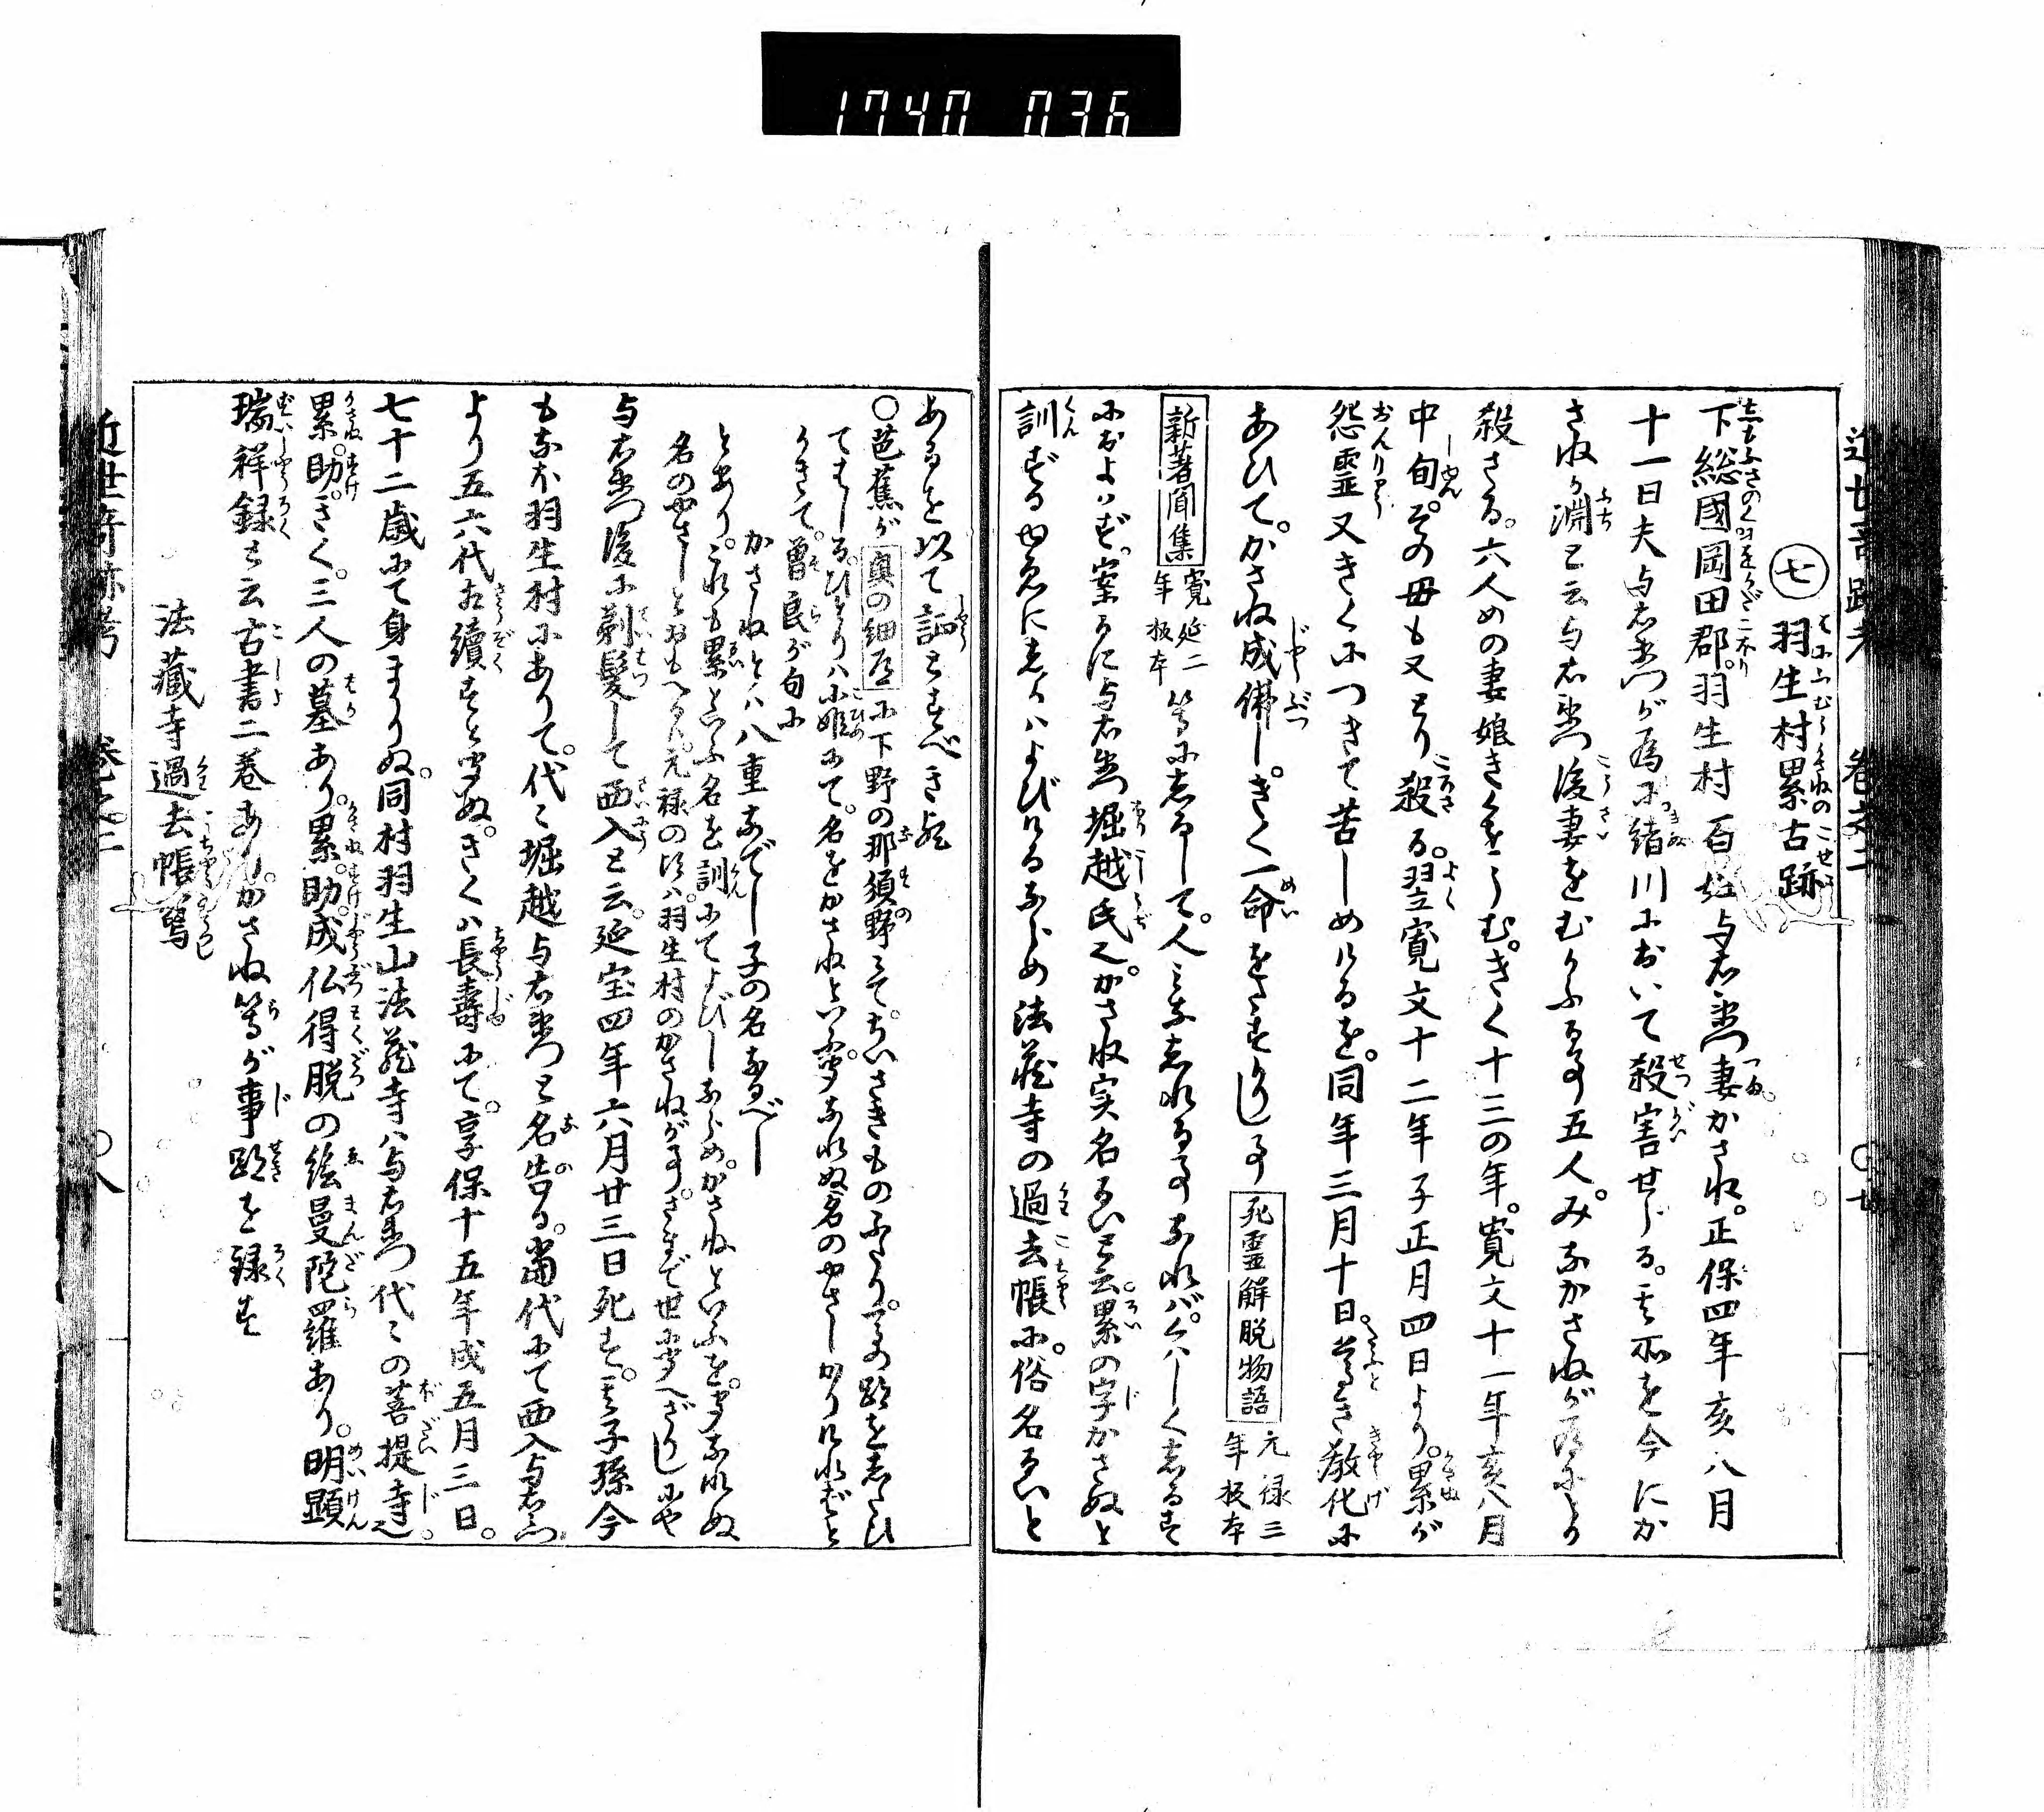 1740 036
近世奇跡考 巻之二 〇七
七 羽生村累古跡
下総國岡田郡。羽生村百姓与右衛門妻かさね。正保四年亥八月
十一日夫与右衛門が為に。絹川において殺害せらる。其所を今にか
さねが淵と云与右衛門後妻をむかふる事五人。みなかさねが為にとり
殺さる。六人めの妻娘きくをうむ。きく十三の年。寛文十一年亥八月
中旬。その母も又とり殺る。翌寛文十二年子正月四日より。累が
怨霊又きくにつきて苦しめけるを。同年三月十日。尊き教化に
あひて。かさね成佛し。きく一命をたすかりし事 死霊解脱物語 元禄三年板本
新著聞集 寛延二年板本 等にしるして。人みなしれる事なれバ。くハしくしるす
におよハず。案るに与右衛門堀越氏也。かさね実名るい也云。累の字かさぬと
訓ずるゆゑにしかハよびけるならめ法蔵寺の過去帳に。俗名るいと
あるを以て証とすべき歟
〇芭蕉が 奥の細道 に下野の那須野にて。ちいさきものふたり。馬の跡をしたひ
てはしる。ひとりハ小姫にて。名をかさねといふ。聞なれぬ名のやさしかりければと
かきて。曽良が句に
かさねとハ八重なでし子の名なるべし
とあり。これも累といふ名を訓にてよびしならめ。かさねといふを。聞なれぬ
名のやさしとおもへるハ。元禄の比ハ。羽生村のかさねが事。さまで世に聞へざりしにや
与右衛門後に剃髪して西入と云。延宝四年六月廿三日死す。其子孫今
もなほ羽生村にありて。代々堀越与右衛門と名告る。当代にて西入与右衛門
より五六代相續すと聞ぬ。きくハ長壽にて。享保十五年戌五月三日。
七十二歳にて身まかりぬ。同村羽生山法蔵寺ハ与右衛門代々の菩提寺也。
累。助。きく。三人の墓あり。累。助。成仏得脱の絵曼陀羅あり。明顕
瑞祥録と云古書二巻あり。かさね等が事跡を録す
法藏寺過去帳写
近世奇跡考 巻之二 〇八